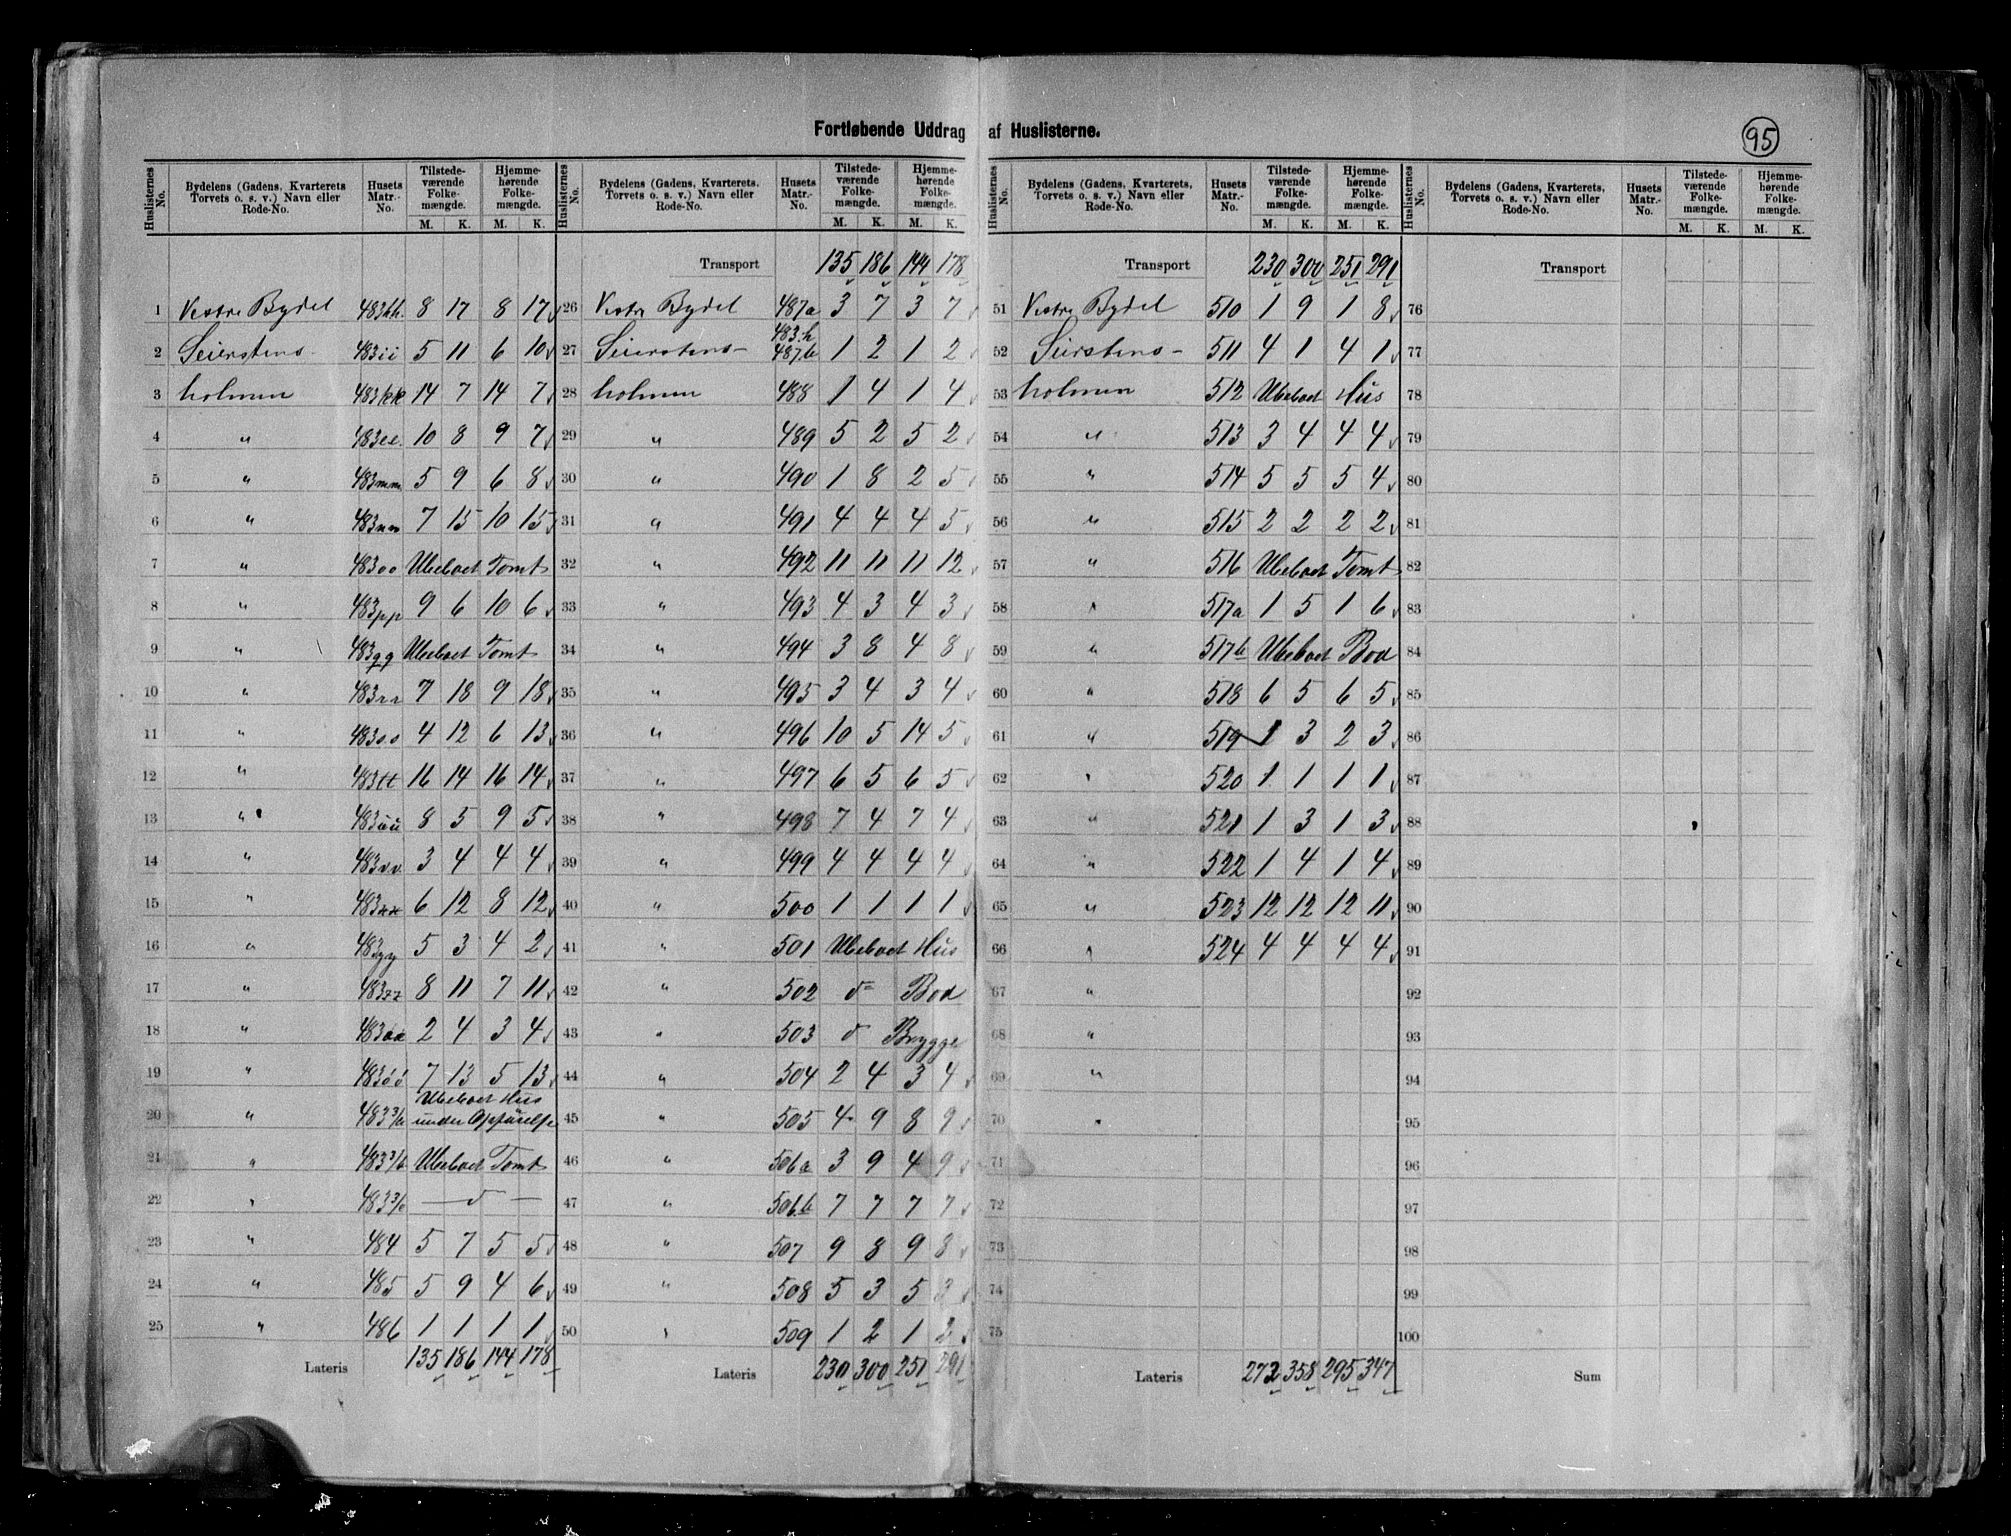 Fortløbende Uddrag af Huslisterne.
95
Huslisternes No. Bydelens (Gadens, Kvarterets Torvets o. s. v.) Navn eller Rode-No. Husets Matr.-No. Tilstedeværende Folkemængde. M. K. Hjemmehørende Folkemængde. M. K.
1 Vestre Bydel 483hh. 8 17 8 17
2 Seierstens- 483ii 5 11 6 10
3 holmen 483kk 14 7 14 7
4 " 483ll. 10 8 9 7
5 " 483mm 5 9 6 8
6 " 483nn 7 15 10 15
7 " 483oo Ubeboet Tomt
8 " 483pp 9 6 10 6
9 " 483qq Ubeboet Tomt
10 " 483rr 7 18 9 18
11 " 483ss 4 12 6 13
12 " 483tt 16 14 16 14
13 " 483üü 8 5 9 5
14 " 483vv. 3 4 4 4
15 " 483xx 6 12 8 12
16 " 483yy 5 3 4 2
17 " 483zz 8 11 7 11
18 " 483 2 4 3 4
19 " 483 7 13 5 13
20 " 483 Ubeboet Hus
under Opførelse
21 " 483 Ubeboet Tomt
22 " 483 — d —
23 " 484 5 7 5 5
24 " 485 5 9 4 6
25 " 486 1 1 1 1
Lateris 135 186 144 178
Huslisternes No. Bydelens (Gadens, Kvarterets, Torvets o. s. v.) Navn eller Rode-No. Husets Matr.-No. Tilstedeværende Folkemængde. M. K. Hjemmehørende Folkemængde. M. K.
Transport 135 186 144 178
26 Vestre Bydel 487a 3 7 3 7
27 Seierstens- 483.h 487.b 1 2 1 2
28 holmen 488 1 4 1 4
29 " 489 5 2 5 2
30 " 490 1 8 2 5
31 " 491 4 4 4 5
32 " 492 11 11 11 12
33 " 493 4 3 4 3
34 " 494 3 8 4 8
35 " 495 3 4 3 4
36 " 496 10 5 14 5
37 " 497 6 5 6 5
38 " 498 7 4 7 4
39 " 499 4 4 4 4
40 " 500 1 1 1 1
41 " 501 Ubeboet Hus
42 " 502 d= Bod
43 " 503 d Brygge
44 " 504 2 4 3 4
45 " 505 4 9 8 9
46 " 506a 3 9 4 9
47 " 506.b 7 7 7 7
48 " 507 9 8 9 8
49 " 508 5 3 5 3
50 " 509 1 2 1 2
Lateris 230 300 251 291
Huslisternes No. Bydelens (Gadens, Kvarterets, Torvets o. s. v.) Navn eller Rode-No. Husets Matr.-No. Tilstedeværende Folkemængde. M. K. Hjemmehørende Folkemængde. M. K.
Transport 230 300 251 291
51 Vestre Bydel 510 1 9 1 8
52 Seierstens- 511 4 1 4 1
53 holmen 512 Ubeboet Hus
54 " 513 3 4 4 4
55 " 514 5 5 5 4
56 " 515 2 2 2 2
57 " 516 Ubeboet Tomt
58 " 517a 1 5 1 6
59 " 517b Ubeboet Bod
60 " 518 6 5 6 5
61 " 519 1 3 2 3
62 " 520 1 1 1 1
63 " 521 1 3 1 3
64 " 522 1 4 1 4
65 " 523 12 12 12 11
66 " 524 4 4 4 4
67 "
68 "
69 "
70 "
71
72
73
74
75
Lateris 272 358 295 347
Huslisternes No. Bydelens (Gadens, Kvarterets, Torvets o. s. v.) Navn eller Rode-No. Husets Matr.-No. Tilstedeværende Folkemængde. M. K. Hjemmehørende Folkemængde. M. K.
Transport
76
77
78
79
80
81
82
83
84
85
86
87
88
89
90
91
92
93
94
95
96
97
98
99
100
Sum